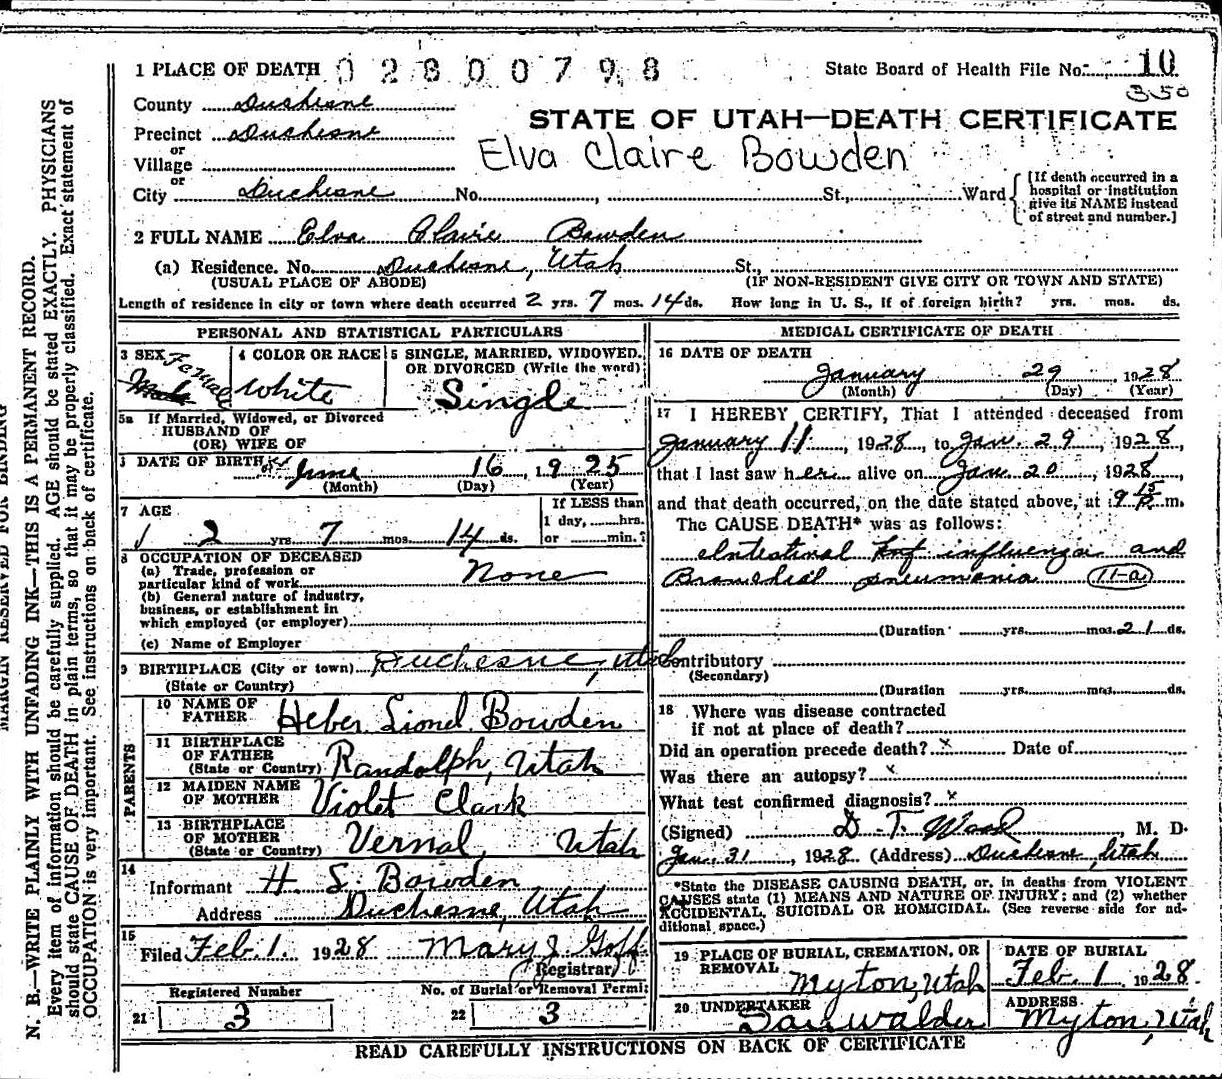 1 PLACE OF DEATH 02800798 State Board of Health File No. 10
350
County Duchesne
STATE OF UTAH—DEATH CERTIFICATE
Precinct Duchesne
or
Village
Elva Claire Bowden
or
City Duchesne No. , St., Ward
[If death occurred in a hospital or institution give its NAME instead of street and number.]
2 FULL NAME Elva Claire Bowden
(a) Residence. No. Duchesne, Utah St.,
(USUAL PLACE OF ABODE) (IF NON-RESIDENT GIVE CITY OR TOWN AND STATE)
Length of residence in city or town where death occurred 2 yrs. 7 mos. 14 ds. How long in U. S., if of foreign birth? yrs. mos. ds.
PERSONAL AND STATISTICAL PARTICULARS
3 SEX Male Female
4 COLOR OR RACE White
5 SINGLE, MARRIED, WIDOWED, OR DIVORCED (Write the word) Single
5a If Married, Widowed, or Divorced
HUSBAND OF
(OR) WIFE OF
DATE OF BIRTH June 16, 1925
(Month) (Day) (Year)
7 AGE 2 yrs. 7 mos. 14 ds.
If LESS than
1 day, hrs.
or min.?
8 OCCUPATION OF DECEASED
(a) Trade, profession or
particular kind of work None
(b) General nature of industry,
business, or establishment in
which employed (or employer)
(c) Name of Employer
9 BIRTHPLACE (City or town) Duchesne, Utah
(State or Country)
PARENTS
10 NAME OF FATHER Heber Lionel Bowden
11 BIRTHPLACE OF FATHER (State or Country) Randolph, Utah
12 MAIDEN NAME OF MOTHER Violet Clark
13 BIRTHPLACE OF MOTHER (State or Country) Vernal, Utah
14
Informant H. L. Bowden
Address Duchesne, Utah
15
Filed Feb. 1. 1928 Mary J. Goff
Registrar
Registered Number No. of Burial or Removal Permit
21 3 22 3
MEDICAL CERTIFICATE OF DEATH
16 DATE OF DEATH
January 29 1928
(Month) (Day) (Year)
17 I HEREBY CERTIFY, That I attended deceased from
January 11, 1928, to Jan. 29, 1928,
that I last saw her alive on Jan 20, 1928
and that death occurred, on the date stated above, at 9 15 P. m.
The CAUSE DEATH* was as follows:
Intestinal influenza and
Bronchial pneumonia 11-a
(Duration yrs. mos. 21 ds.
Contributory
(Secondary)
(Duration yrs. mos. ds.
18 Where was disease contracted
if not at place of death?
Did an operation precede death? x Date of
Was there an autopsy? x
What test confirmed diagnosis? x
(Signed) D. T. Wood, M. D.
Jan. 31, 1928 (Address) Duchesne, Utah
*State the DISEASE CAUSING DEATH, or, in deaths from VIOLENT
CAUSES state (1) MEANS AND NATURE OF INJURY; and (2) whether
ACCIDENTAL, SUICIDAL OR HOMICIDAL. (See reverse side for ad-
ditional space.)
19 PLACE OF BURIAL, CREMATION, OR REMOVAL Myton, Utah
DATE OF BURIAL Feb. 1 1928
20 UNDERTAKER Walder
ADDRESS Myton, Utah
READ CAREFULLY INSTRUCTIONS ON BACK OF CERTIFICATE
MARGIN RESERVED FOR BINDING
N. B.—WRITE PLAINLY WITH UNFADING INK—THIS IS A PERMANENT RECORD.
Every item of information should be carefully supplied. AGE should be stated EXACTLY. PHYSICIANS
should state CAUSE OF DEATH in plain terms, so that it may be properly classified. Exact statement of
OCCUPATION is very important. See instructions on back of certificate.